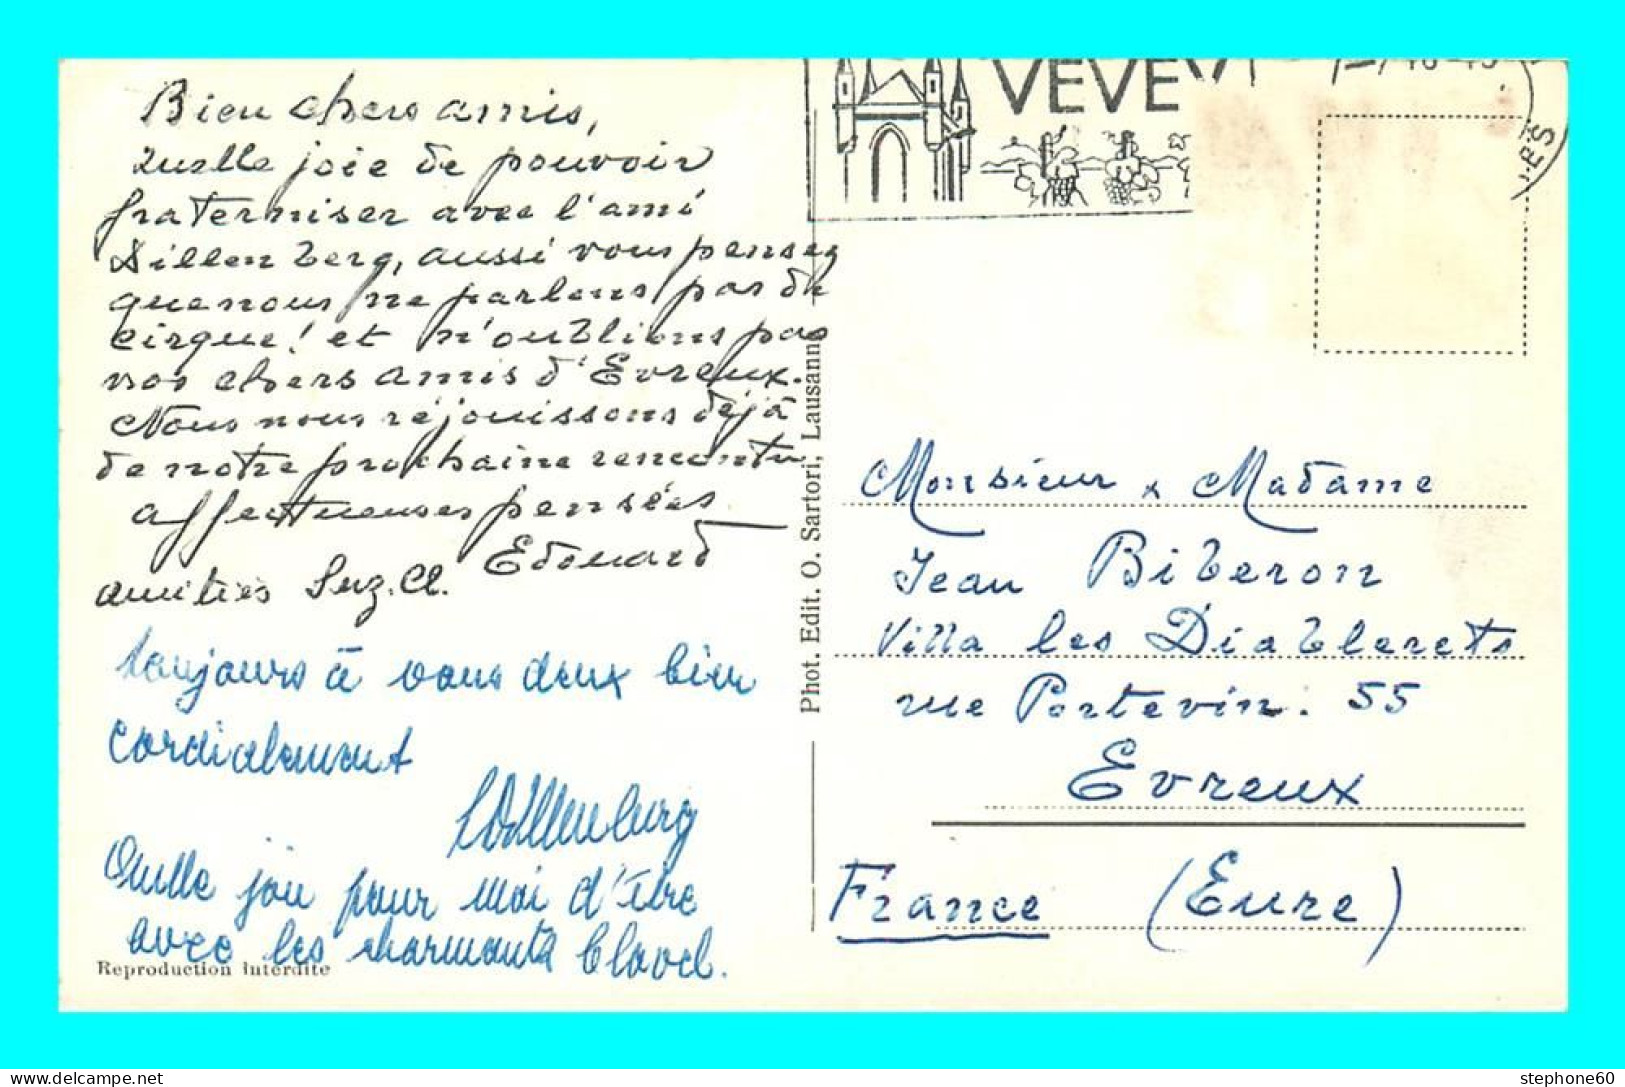 Bien chers amis,
Quelle joie de pouvoir
fraterniser avec l'ami
Dillenberg, aussi vous pensez
que nous ne parlons pas de
cirque! et n'oublions pas
nos chers amis d'Evreux.
Nous nous réjouissons déjà
de notre prochaine rencontre
affectueuses pensées
Edouard
amitiés Suz. Cl.
toujours à vous deux bien
cordialement
Dillenburg
Quelle joie pour moi d'être
avec les charmants Clavel.
Reproduction interdite
Phot. Edit. O. Sartori, Lausanne
VEVEY
Monsieur & Madame
Jean Biberon
Villa les Diablerets
rue Portevin. 55
Evreux
France (Eure)
stephone60